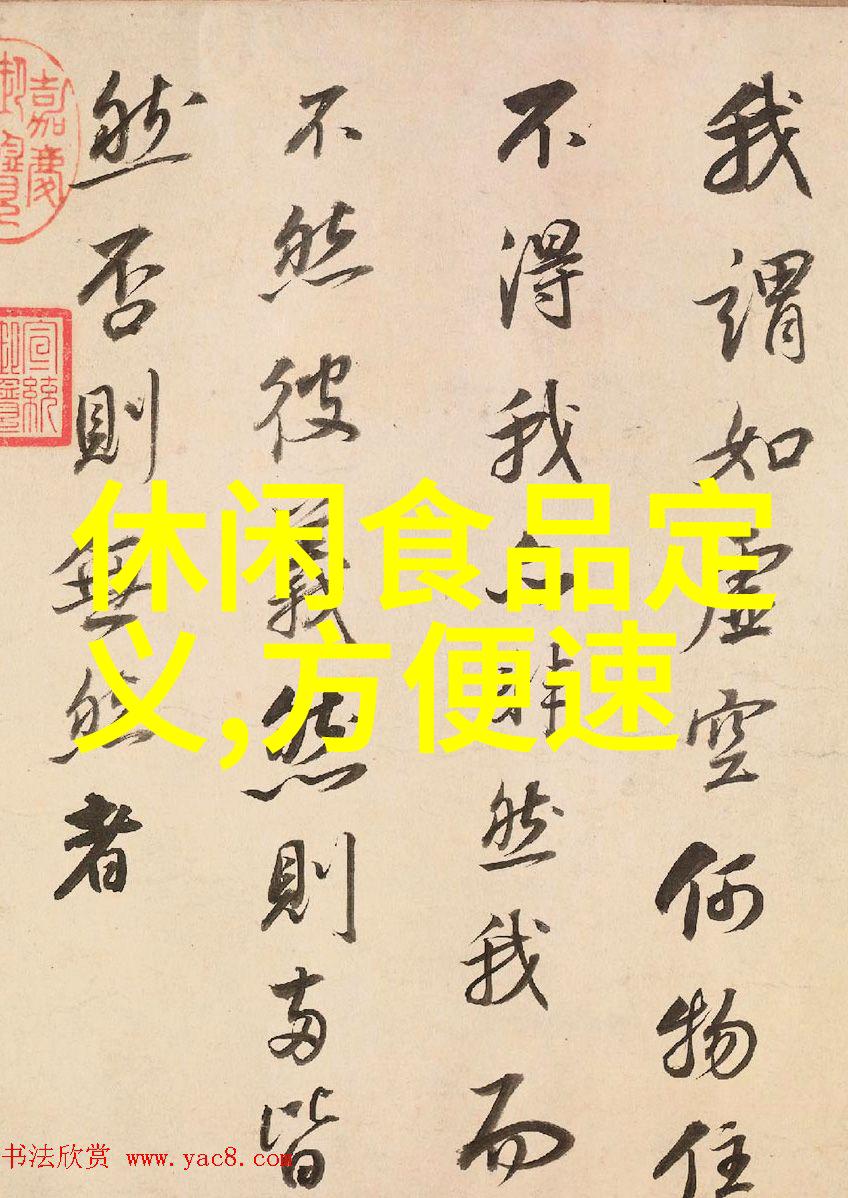 我謂如虛空何物住
不得我然我而
不然彼義然則兩皆
然否則無然者
嘉慶
宣統
休闲食品定
义,方便速
书法欣赏 www.yac8.com